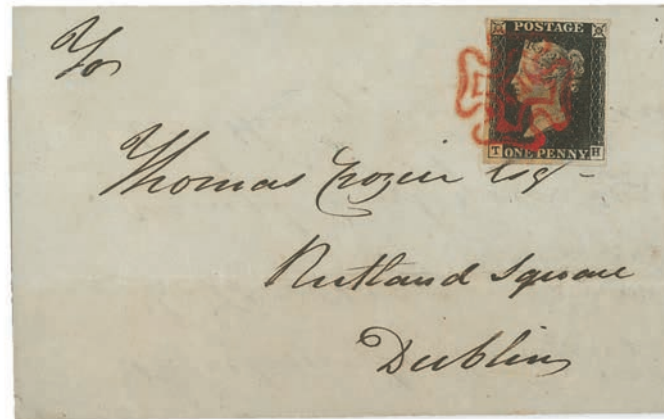 POSTAGE
T ONE PENNY H
For
Thomas Crozier Esq
Rutland Square
Dublin